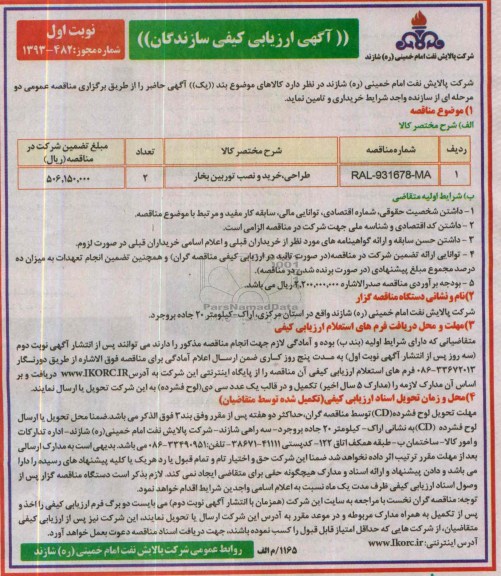 نوبت اول
شماره مجوز: ۴۸۲-۱۳۹۳
(( آگهی ارزیابی کیفی سازندگان))
شرکت پالایش نفت امام خمینی (ره) شازند
شرکت پالایش نفت امام خمینی (ره) شازند در نظر دارد کالاهای موضوع بند ((یک)) آگهی حاضر را از طریق برگزاری مناقصه عمومی دو
مرحله ای از سازنده واجد شرایط خریداری و تامین نماید.
۱) موضوع مناقصه
الف) شرح مختصر کالا
ردیف شماره مناقصه شرح مختصر کالا تعداد مبلغ تضمین شرکت در مناقصه(ریال)
۱ RAL-931678-MA طراحی،خرید و نصب توربین بخار ۲ ۵۰۶,۱۵۰,۰۰۰
ب) شرایط اولیه متقاضی
۱- داشتن شخصیت حقوقی، شماره اقتصادی، توانایی مالی، سابقه کار مفید و مرتبط با موضوع مناقصه.
۲- داشتن کد اقتصادی و شناسه ملی جهت شرکت در مناقصه الزامی است.
۳- داشتن حسن سابقه و ارائه گواهینامه های مورد نظر از خریداران قبلی و اعلام اسامی خریداران قبلی در صورت لزوم.
۴- توانایی ارائه تضمین شرکت در مناقصه(در صورت تائید در ارزیابی کیفی مناقصه گران) و همچنین تضمین انجام تعهدات به میزان ده
درصد مجموع مبلغ پیشنهادی (در صورت برنده شدن در مناقصه).
۵- بودجه برآوردی مناقصه صدرالاشاره ۲,۲۰۰,۰۰۰,۰۰۰ ریال می باشد.
ParsNamadData
۲)نام و نشانی دستگاه مناقصه گزار
شرکت پالایش نفت امام خمینی (ره) شازند واقع در استان مرکزی، اراک-کیلومتر ۲۰ جاده بروجرد.
۳)مهلت و محل دریافت فرم های استعلام ارزیابی کیفی
متقاضیانی که دارای شرایط اولیه (بند ب) بوده و آمادگی لازم جهت انجام مناقصه مذکور را دارند می توانند پس از انتشار آگهی نوبت دوم
(سه روز پس از انتشار آگهی نوبت اول) به مدت پنج روز کاری ضمن ارسال اعلام آمادگی برای مناقصه فوق الاشاره از طریق دورنگار
۳۳۶۷۲۰۱۳-۰۸۶ فرم های استعلام ارزیابی کیفی آن مناقصه را از پایگاه اینترنتی این شرکت به آدرس WWW.IKORC.IR دریافت و بر
اساس آن مدارک لازمه را (مدارک ۵ سال اخیر) تکمیل و در قالب یک عدد سی دی(لوح فشرده) به این شرکت تحویل یا ارسال نمایند.
۴)محل و زمان تحویل اسناد ارزیابی کیفی(تکمیل شده توسط متقاضیان)
مهلت تحویل لوح فشرده(CD) توسط مناقصه گران،حداکثر دو هفته پس از مقرر وفق بند۳ فوق الذکر می باشد.ضمنا محل تحویل یا ارسال
لوح فشرده (CD) به نشانی اراک- کیلومتر ۲۰ جاده بروجرد-سه راهی شازند-شرکت پالایش نفت امام خمینی (ره) شازند-اداره تدارکات
و امور کالا- ساختمان ب- طبقه همکف اتاق ۱۲۲- کدپستی ۴۱۱۱۱-۳۸۶۷۱-تلفن: ۳۳۴۹۰۹۵۱-۰۸۶ می باشد. بدیهی است به مدارک ارسالی
بعد از مهلت مقرر ترتیب اثر داده نخواهد شد ضمنا این شرکت حق و اختیار تام و تمام قبول یا رد هریک یا کلیه پیشنهاد های رسیده را دارا
می باشد و دادن پیشنهاد و ارائه اسناد و مدارک هیچگونه حقی برای متقاضی ایجاد نمی کند. لازم بذکر است دستگاه مناقصه گزار پس از
وصول اسناد ارزیابی کیفی ظرف مدت یک ماه نسبت به اعلام اسامی واجدین شرایط اقدام خواهد نمود.
توجه: مناقصه گران نخست با مراجعه به سایت این شرکت (همزمان با انتشار آگهی نوبت دوم) می بایست دو برگ فرم ارزیابی کیفی را اخذ و
پس از تکمیل به همراه مدارک مربوطه و در موعد مقرر به آدرس این شرکت ارسال یا تحویل نمایند، این شرکت نیز پس از ارزیابی کیفی
متقاضیان، از شرکت هایی که حداقل امتیاز قابل قبول را کسب نموده باشند، جهت دریافت اسناد مناقصه دعوت بعمل خواهد آورد.
آدرس اینترنتی: www.Ikorc.ir
۱۱۶۵/م الف
روابط عمومی شرکت پالایش نفت امام خمینی (ره) شازند